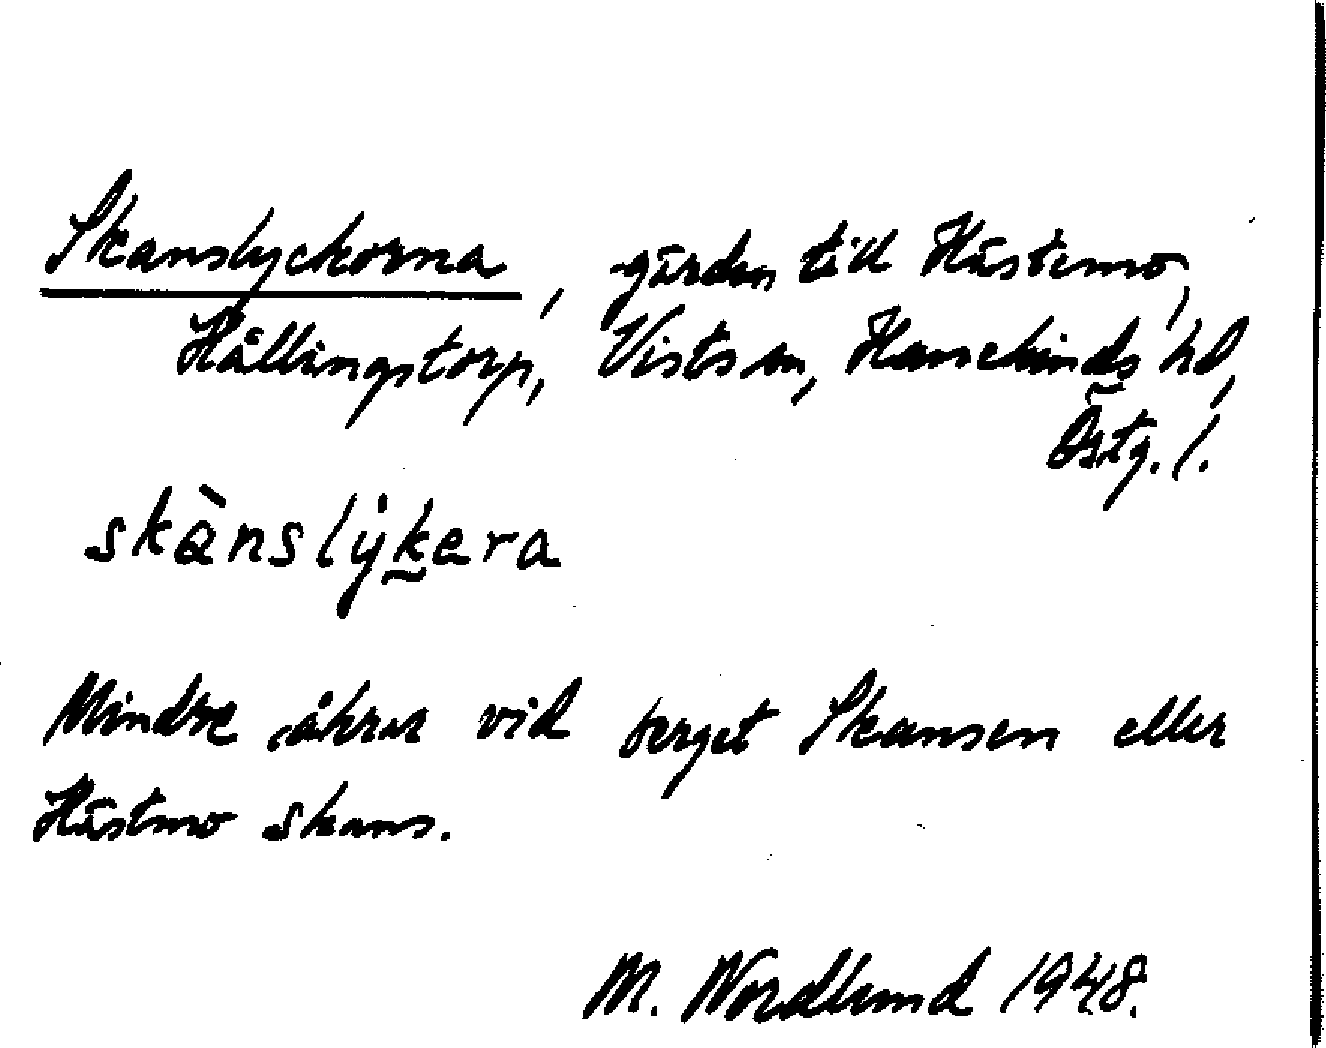 Skanslyckorna, gärden till Hästemo,
Hållingstorp, Vists sn, Hanekinds hd,
Östg. l.
skànslýkera
Mindre åkrar vid berget Skansen eller
Hästmo skans.
M. Nordlund 1948.